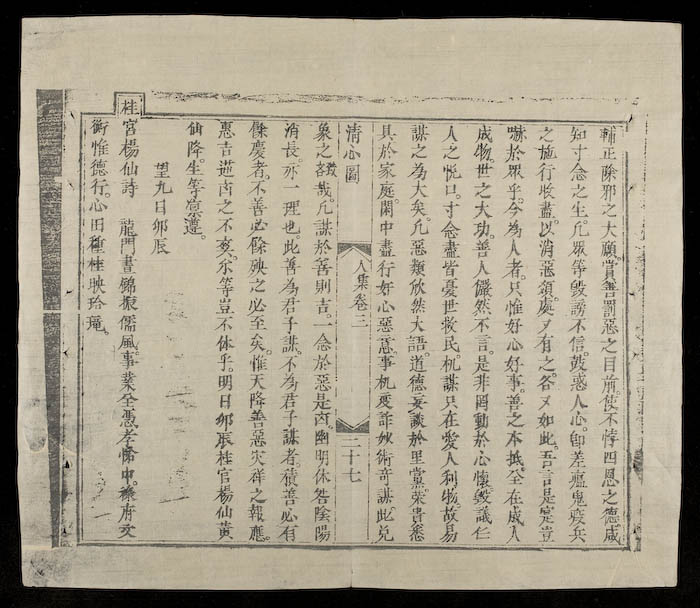 輔正除邪之大願。賞善罰惡之目前。使不悖四恩之德。咸
知寸念之生。凡眾等毀謗不信。鼓惑人心。即差瘟鬼疫兵
之施行收盡。以消惡類。處又有之。各又如此。吾言是寔。豈
嚇於眾乎。今為人者。只惟好心好事。善之本抵。全在成人
成物。世之大功。善人儼然不言。是非罔動於心懷。毀議仁
人之悅口。寸念盡皆憂世救民。机謀只在愛人利物。故易
謀之為大矣。凡惡類欣然大語。道德妄談於里黨。榮貴悉
具於家庭。閑中盡行好心惡意。事机变詐妙術奇謀。此兌
清心圖
人集卷三
二十七
象之咎哉。凡謀於善則吉。一念於惡是㐫。幽明休咎陰陽
消長。亦一理也。此善為君子謀。不為君子謀者。積善必有
餘慶者。不善必餘殃之必至矣。惟天降善惡灾祥之報應。
惠吉逆㐫之不爽。尔等豈不休乎。明日卯辰桂宮楊仙黃
仙降。生等禀遵。
望九日卯辰
桂宮楊仙詩 龍門晝錦振儒風。事業全憑孝悌中。察府文
衡惟德行。心田種桂映玲瓏。